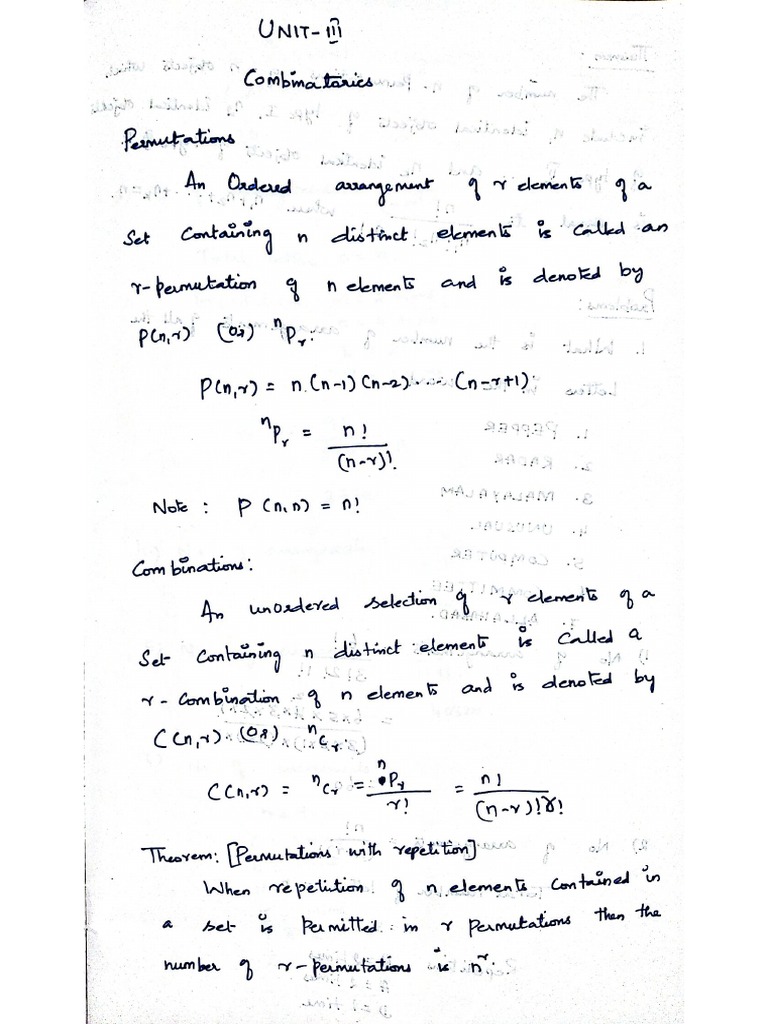 UNIT-III
Combinatorics
Permutations
An Ordered arrangement of r elements of a
Set Containing n distinct elements is called an
r-permutation of n elements and is denoted by
P(n,r) (or) nPr.
P(n,r) = n.(n-1)(n-2).....(n-r+1).
nPr = n! / (n-r)!.
Note : P(n,n) = n!
Combinations:
An unordered selection of r elements of a
Set Containing n distinct elements is called a
r-Combination of n elements and is denoted by
C(n,r) (or) nCr.
C(n,r) = nCr = nPr / r! = n! / (n-r)!r!
Theorem: [Permutations with repetition]
When repetition of n elements contained in
a set is permitted in r permutations then the
number of r-permutations is n^r.